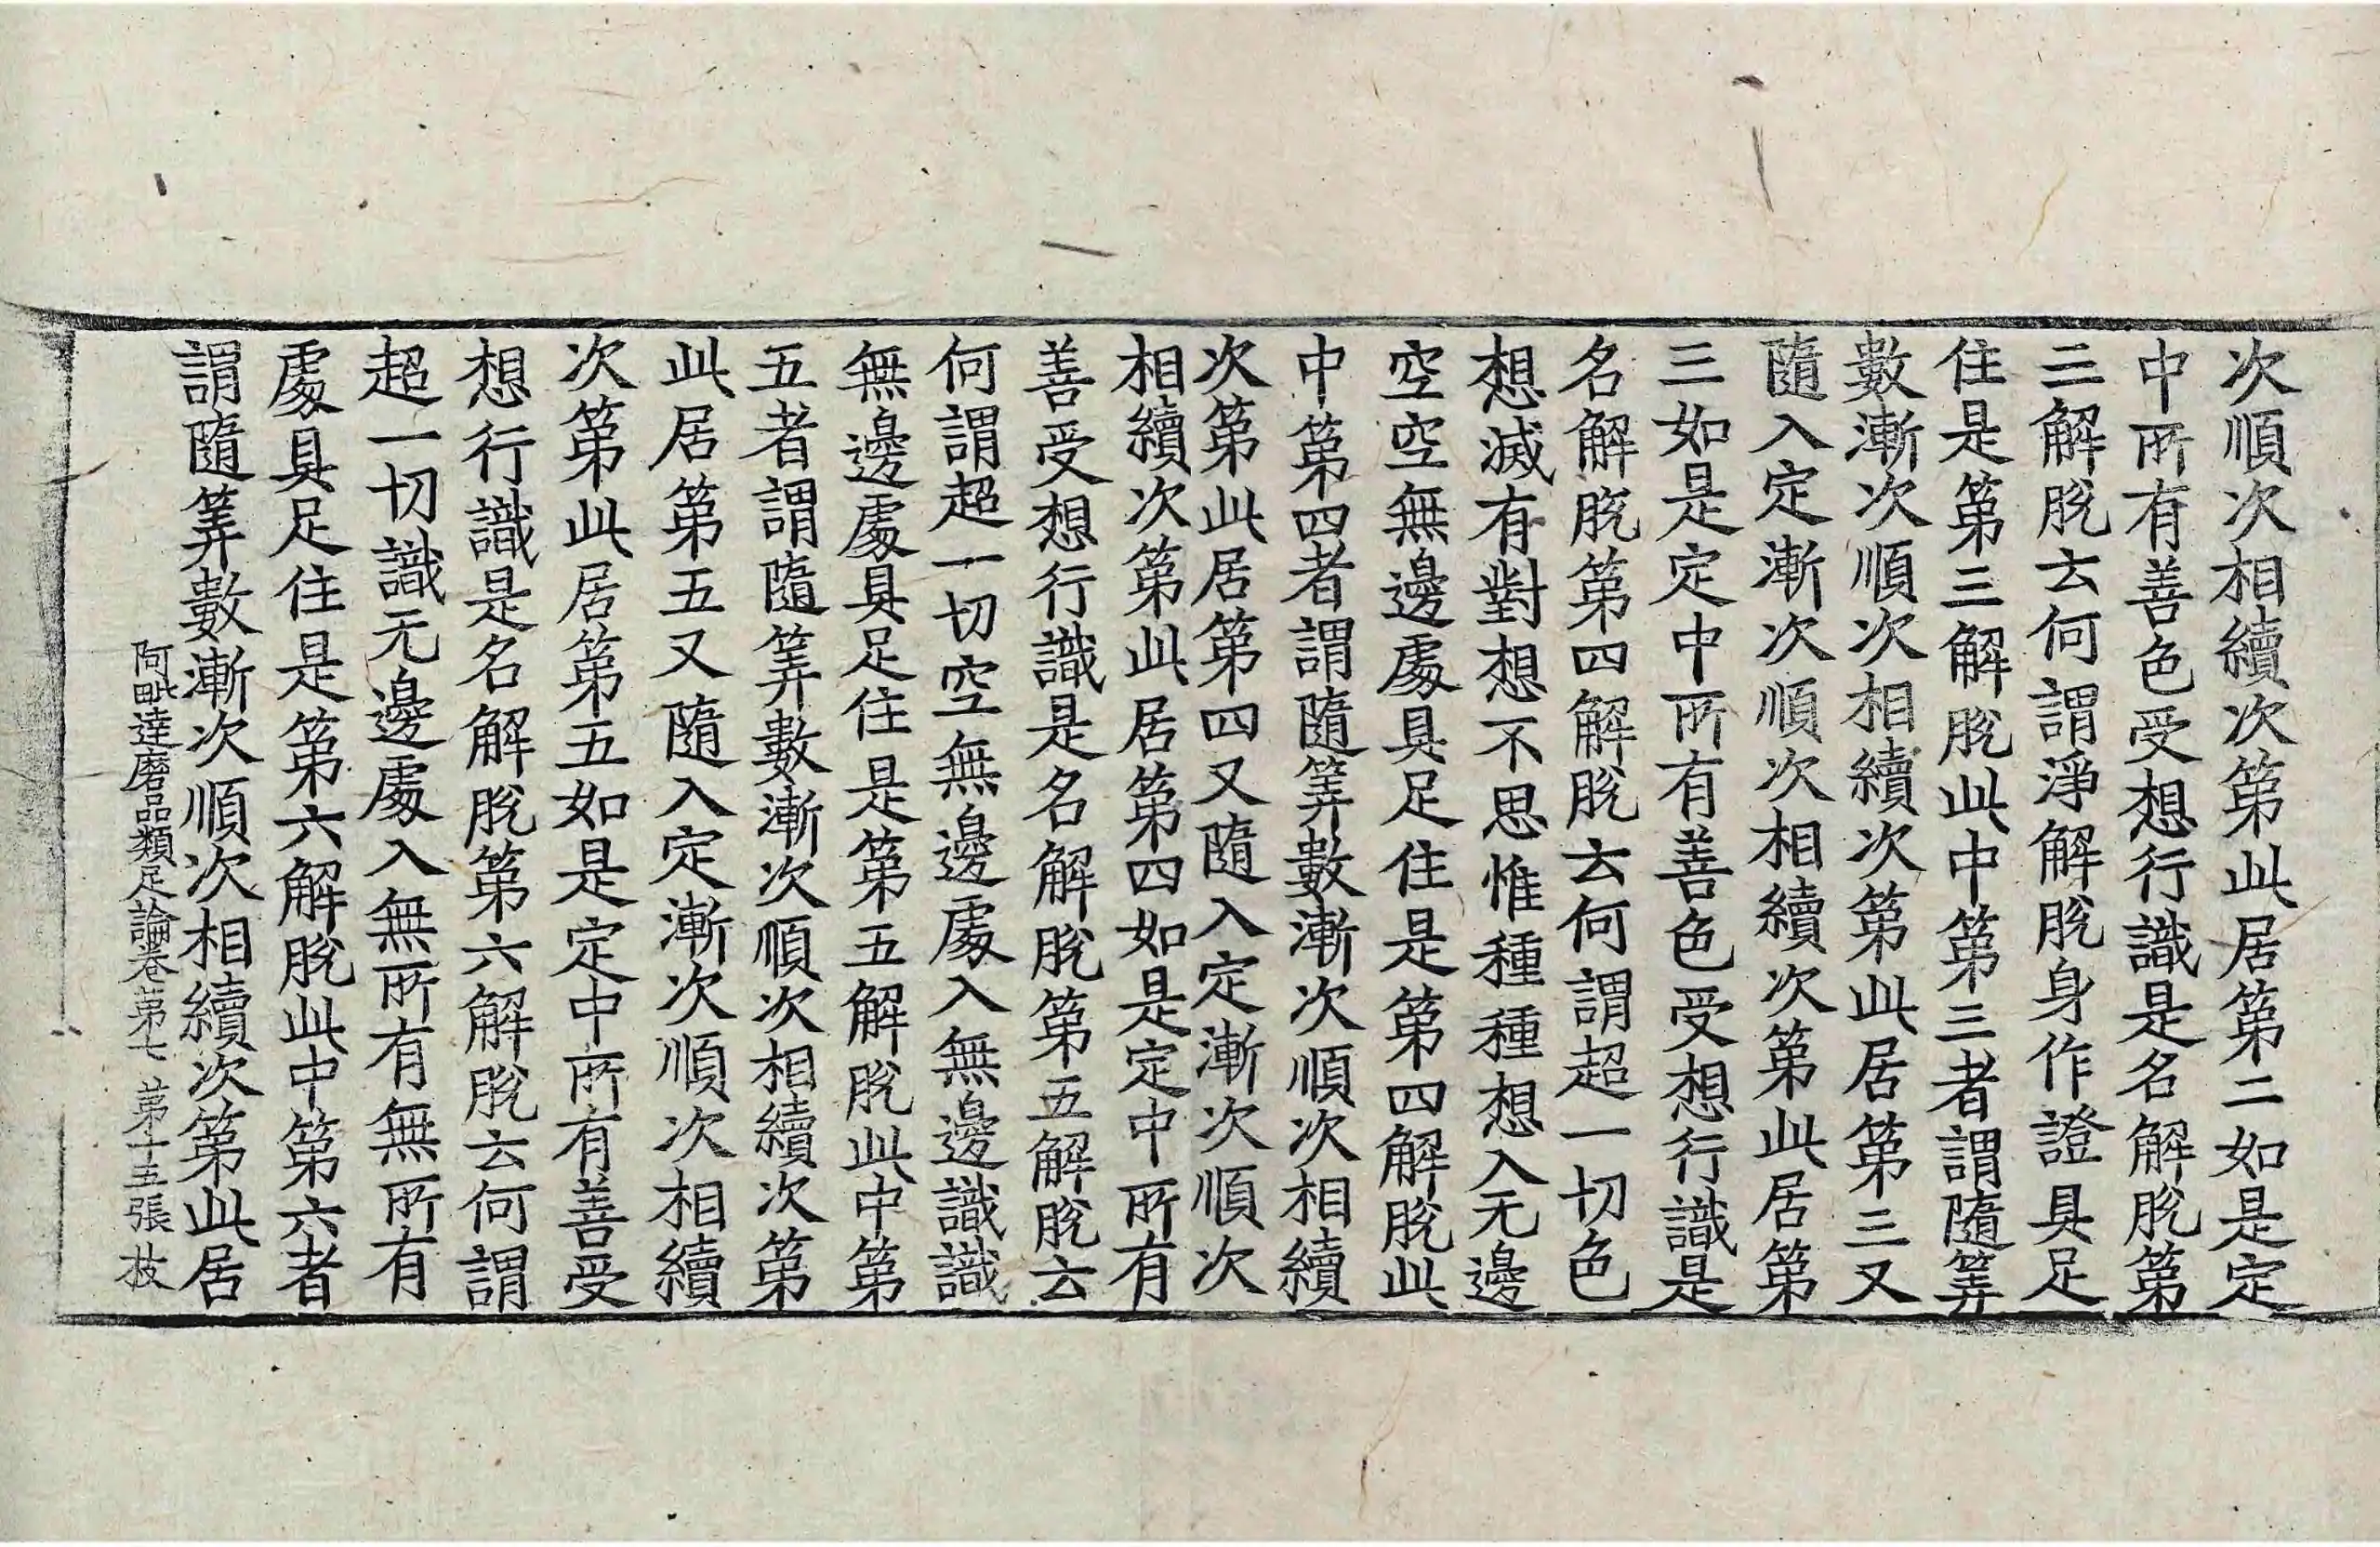 次順次相續次第此居第二如是定
中所有善色受想行識是名解脫第
三解脫云何謂淨解脫身作證具足
住是第三解脫此中第三者謂隨筭
數漸次順次相續次第此居第三又
隨入定漸次順次相續次第此居第
三如是定中所有善色受想行識是
名解脫第四解脫云何謂超一切色
想滅有對想不思惟種種想入无邊
空空無邊處具足住是第四解脫此
中第四者謂隨筭數漸次順次相續
次第此居第四又隨入定漸次順次
相續次第此居第四如是定中所有
善受想行識是名解脫第五解脫云
何謂超一切空無邊處入無邊識識
無邊處具足住是第五解脫此中第
五者謂隨筭數漸次順次相續次第
此居第五又隨入定漸次順次相續
次第此居第五如是定中所有善受
想行識是名解脫第六解脫云何謂
超一切識无邊處入無所有無所有
處具足住是第六解脫此中第六者
謂隨筭數漸次順次相續次第此居
阿毗達磨品類足論卷第七 第十五張 技